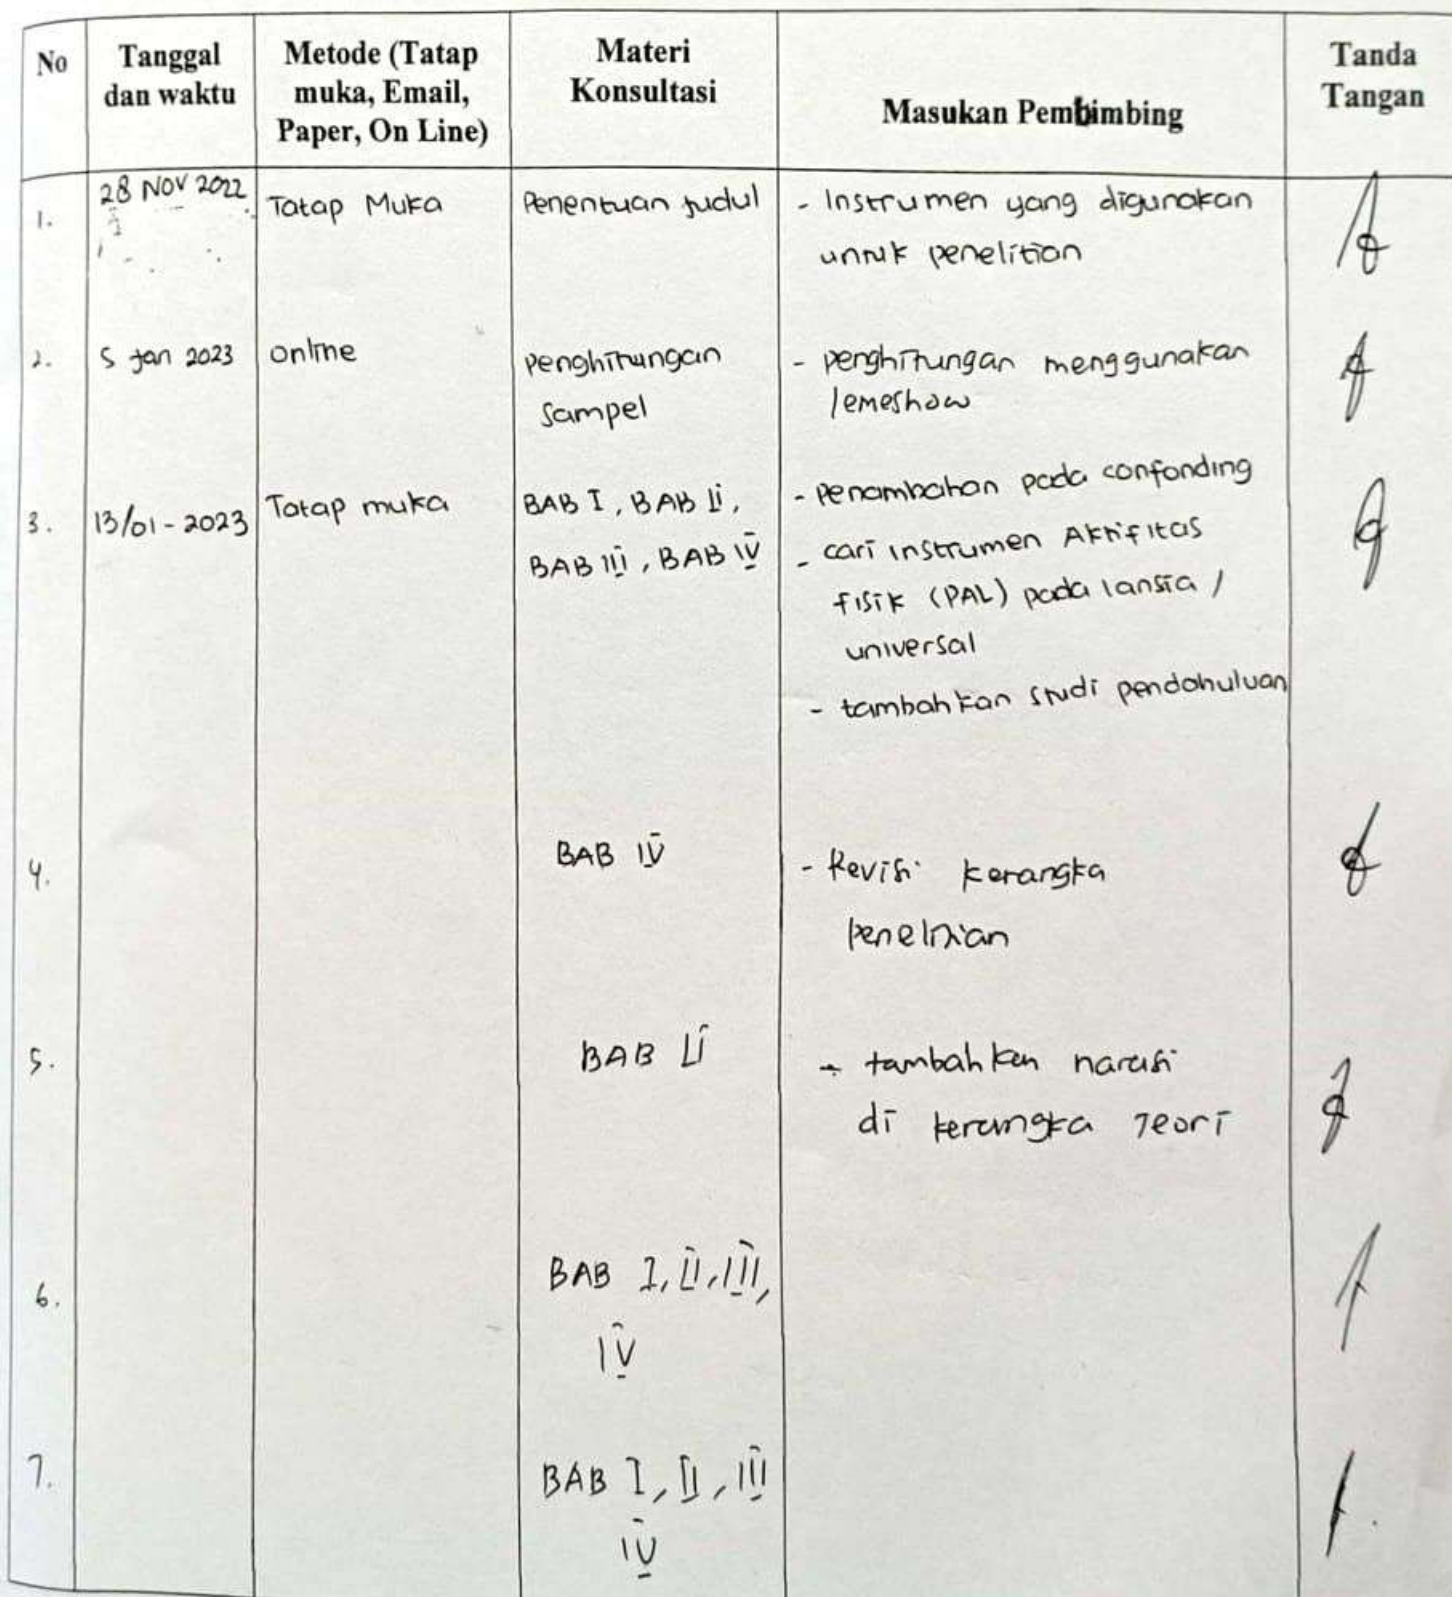 No
Tanggal
dan waktu
Metode (Tatap
muka, Email,
Paper, On Line)
Materi
Konsultasi
Masukan Pembimbing
Tanda
Tangan
1.
28 NOV 2022
Tatap Muka
Penentuan judul
- Instrumen yang digunakan
untuk penelitian
2.
5 Jan 2023
online
Penghitungan
Sampel
- penghitungan menggunakan
lemeshow
3.
13/01 - 2023
Tatap muka
BAB I, BAB II,
BAB III, BAB IV
- Penambahan pada confonding
- cari instrumen Aktifitas
fisik (PAL) pada lansia /
universal
- tambahkan studi pendahuluan
4.
BAB IV
- Revisi kerangka
penelitian
5.
BAB II
- tambahkan narasi
di kerangka Teori
6.
BAB I, II, III,
IV
7.
BAB I, II, III
IV